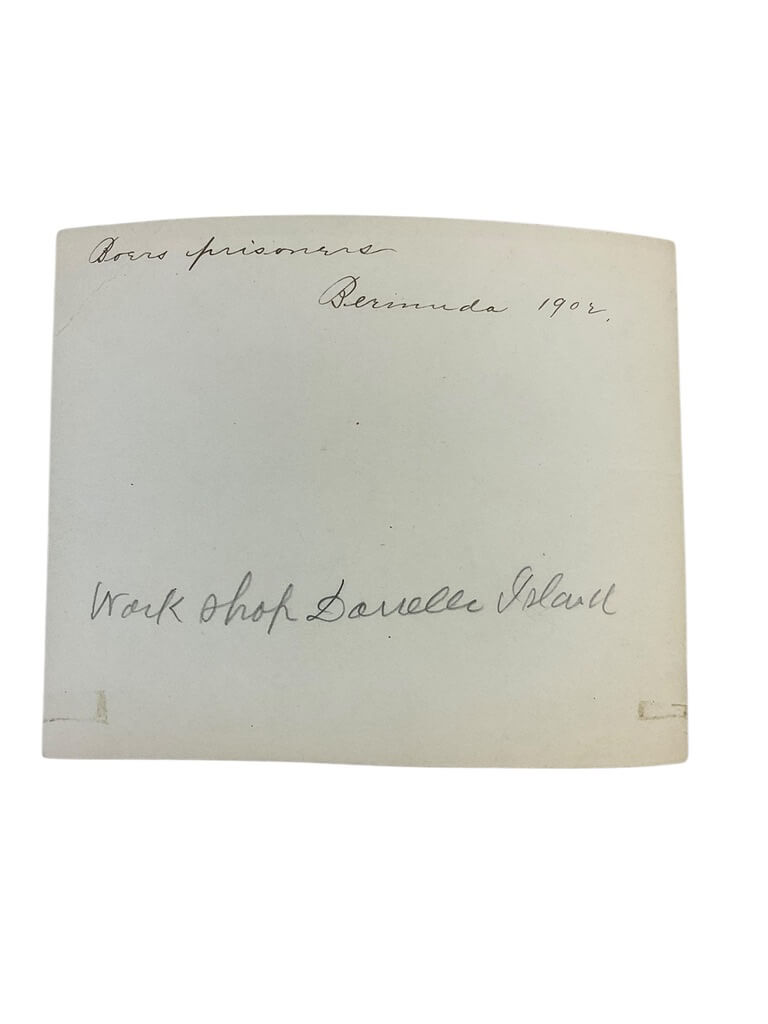 Boers prisoners
Bermuda 1902.
Work shop Darrelle Island